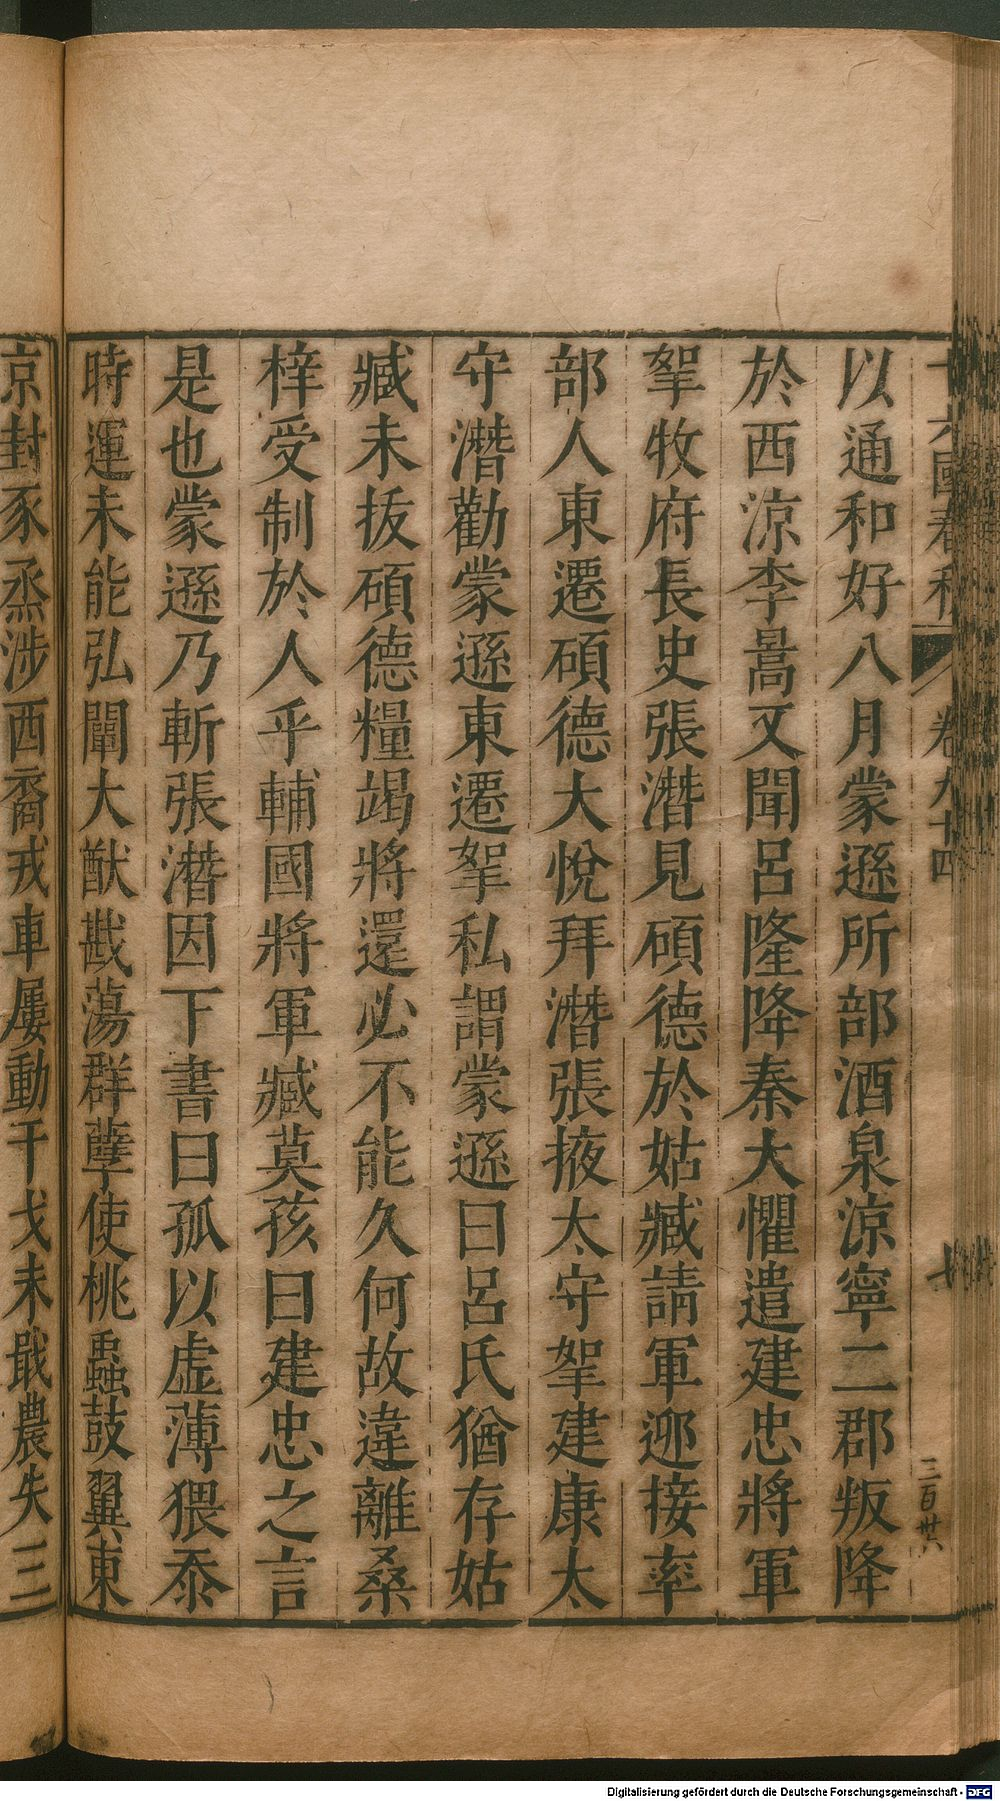 十六國春秋
卷九十四
七
三百卅六
以通和好八月蒙遜所部酒泉涼寧二郡叛降
於西涼李暠又聞呂隆降秦大懼遣建忠將軍
挐牧府長史張潛見碩德於姑臧請軍迎接率
部人東遷碩德大悅拜潛張掖太守挐建康太
守潛勸蒙遜東遷挐私謂蒙遜曰呂氏猶存姑
臧未拔碩德糧竭將還必不能久何故違離桑
梓受制於人乎輔國將軍臧莫孩曰建忠之言
是也蒙遜乃斬張潛因下書曰孤以虛薄猥忝
時運未能弘闡大猷戡蕩群孽使桃蟲鼓翼東
京封豕烝涉西裔戎車屢動干戈未戢農失三
Digitalisierung gefördert durch die Deutsche Forschungsgemeinschaft - DFG